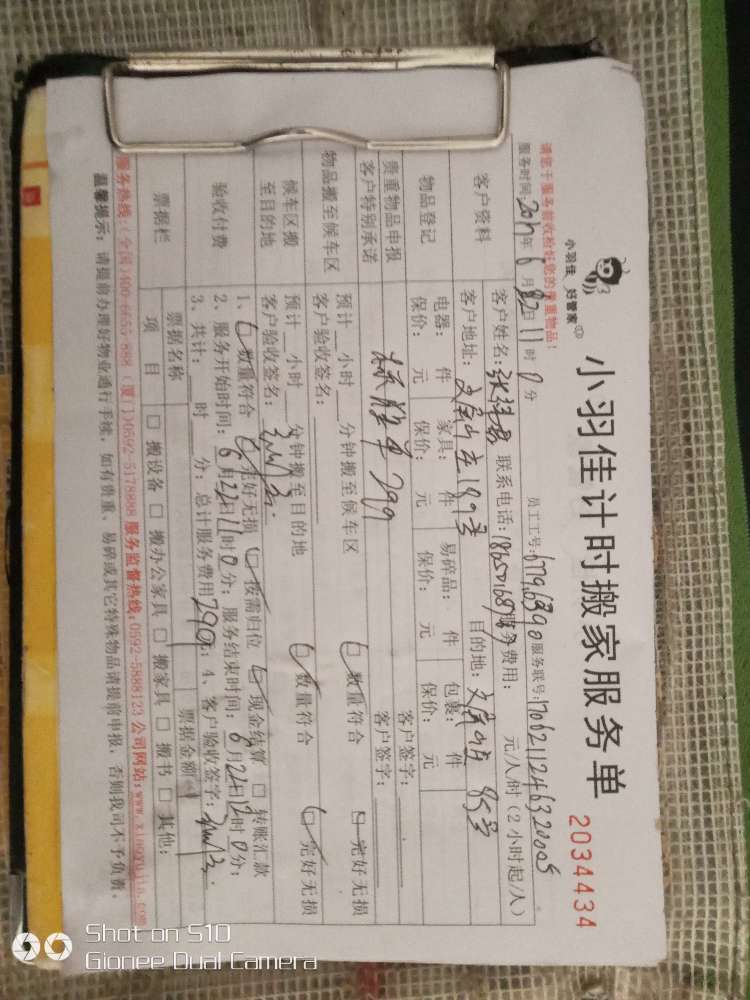 小羽佳 好管家
小羽佳计时搬家服务单
2034434
请您于服务前收检好您的贵重物品!
服务时间:2017年6月22日11时0分 员工工号:6779,6390 服务联号:1706211246320005
客户资料
客户姓名: 联系电话: 服务费用: 元/人/时(2小时起/人)
客户地址: 189号 目的地: 85号
物品登记
电器: 件 家具: 件 易碎品: 件 包裹: 件
保价: 元 保价: 元 保价: 元 保价: 元
贵重物品申报 客户签字:
客户特别承诺 299 客户签字:
物品搬至候车区
预计 小时 分钟搬至候车区 数量符合 完好无损
客户验收签名:
候车区搬至目的地
预计 小时 分钟搬至目的地 数量符合 完好无损
客户验收签名:
验收付费
1、数量符合 完好无损 按需归位 现金结算 转账汇款
2、服务开始时间:6月22日11时0分;服务结束时间:6月22日12时0分;
3、共计: 时 分;总计服务费用290元;4、客户验收签字:
票据栏
票据名称 票据金额
项目 搬设备 搬办公家具 搬家具 搬书 其他:
服务热线:(全国)400-6652-888 (厦门)0592-5178888 服务监督热线:0592-5888123 公司网站:www.xiaoyujia.com
温馨提示:请提前办理好物业通行手续,如有贵重、易碎或其它特殊物品请提前申报,否则我司不予负责。
Shot on S10
Gionee Dual Camera